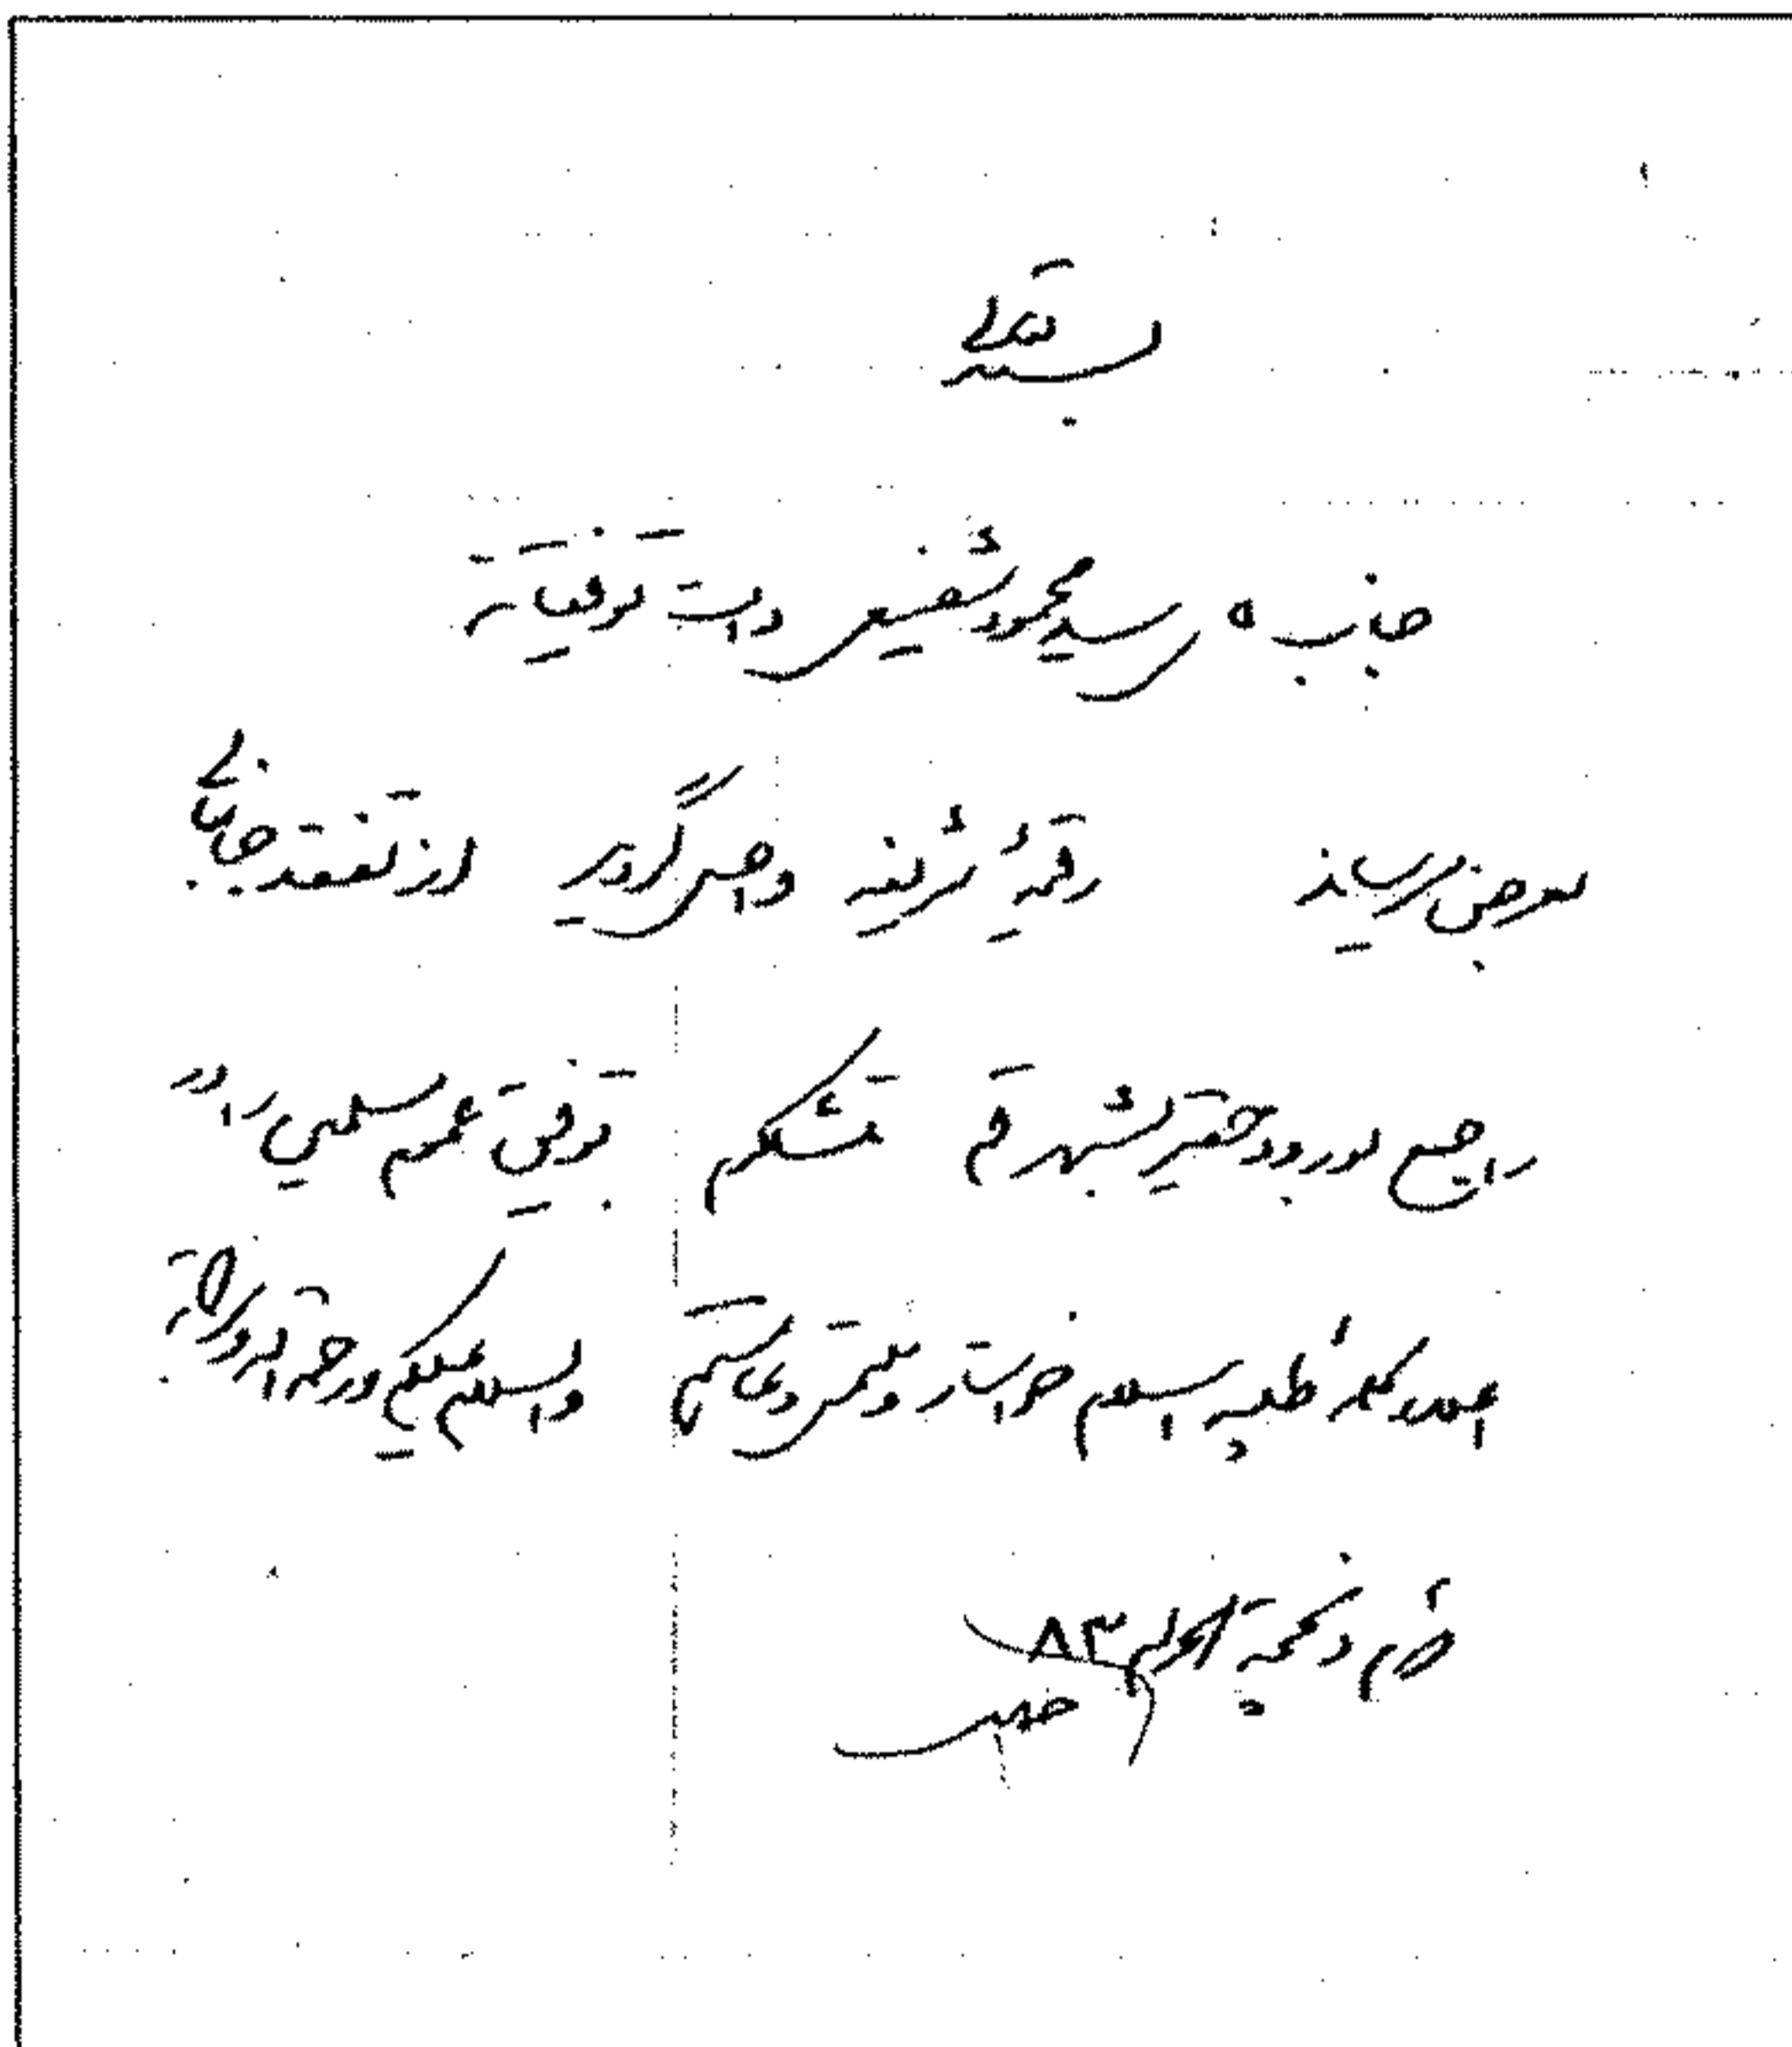 بسمه تعالی
جناب آقای سید محمود شفیعی دامت توفیقاته
بعرض میرساند رقیمهٔ شریفه واصل گردید از تفقد جنابعالی
راجع بورود حقیر بشهر قم متشکرم توفیق عموم مسلمین را در
اعلاء کلمهٔ طیبه اسلام خواستار و ملتمس دعا هستم والسلام علیکم ورحمة الله وبرکاته
ذیحجة الحرام ۸۳